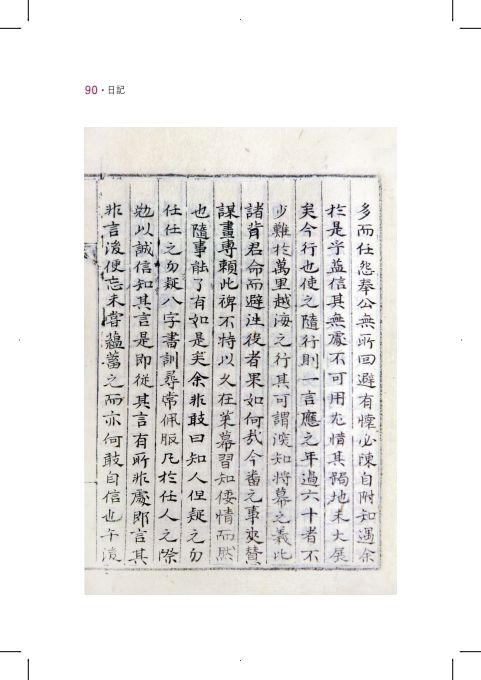 90·日記
多而任怨奉公無所回避有懷必陳自附知遇余
於是乎益信其無處不可用尤惜其陽地未大展
矣今行也使之隨行則一言應之年過六十者不
少難於萬里越海之行其可謂深知將幕之義此
諸肯君命而避從役者果如何哉今番之事夾贊
謀畫專賴此裨不特以久在萊幕習知倭情而然
也隨事能了有如是矣余非敢曰知人但疑之勿
任任之勿疑八字書訓尋常佩服凡於任人之際
勉以誠信知其言是即從其言有所非處即言其
非言後便忘未嘗蘊蓄之而亦何敢自信也午後